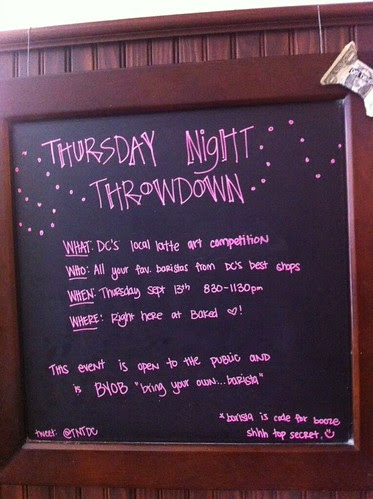 THURSDAY NIGHT
THROWDOWN
WHAT: DC's local latte art competition
WHO: All your fav. baristas from DC's best shops
WHEN: Thursday Sept 13th 830-1130pm
WHERE: Right here at Baked ♡!
This event is open to the public and
is BYOB "bring your own...barista"
*barista is code for booze
shhh top secret.
tweet: @TNTDC